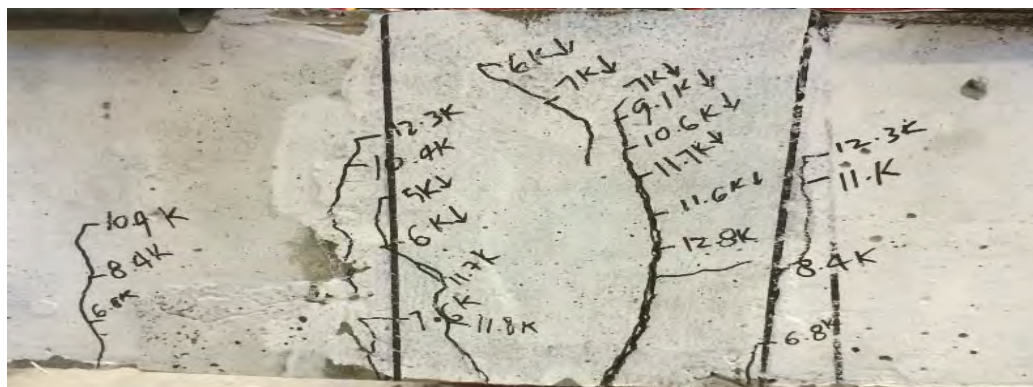 10.4 K
8.4K
6.8K
12.3K
10.4K
5K↓
6K↓
11.7K
7.6K
11.8K
6K↓
7K↓
7K↓
9.1K↓
10.6K↓
11.7K↓
11.6K↓
12.8K
12.3K
11.K
8.4K
6.8K